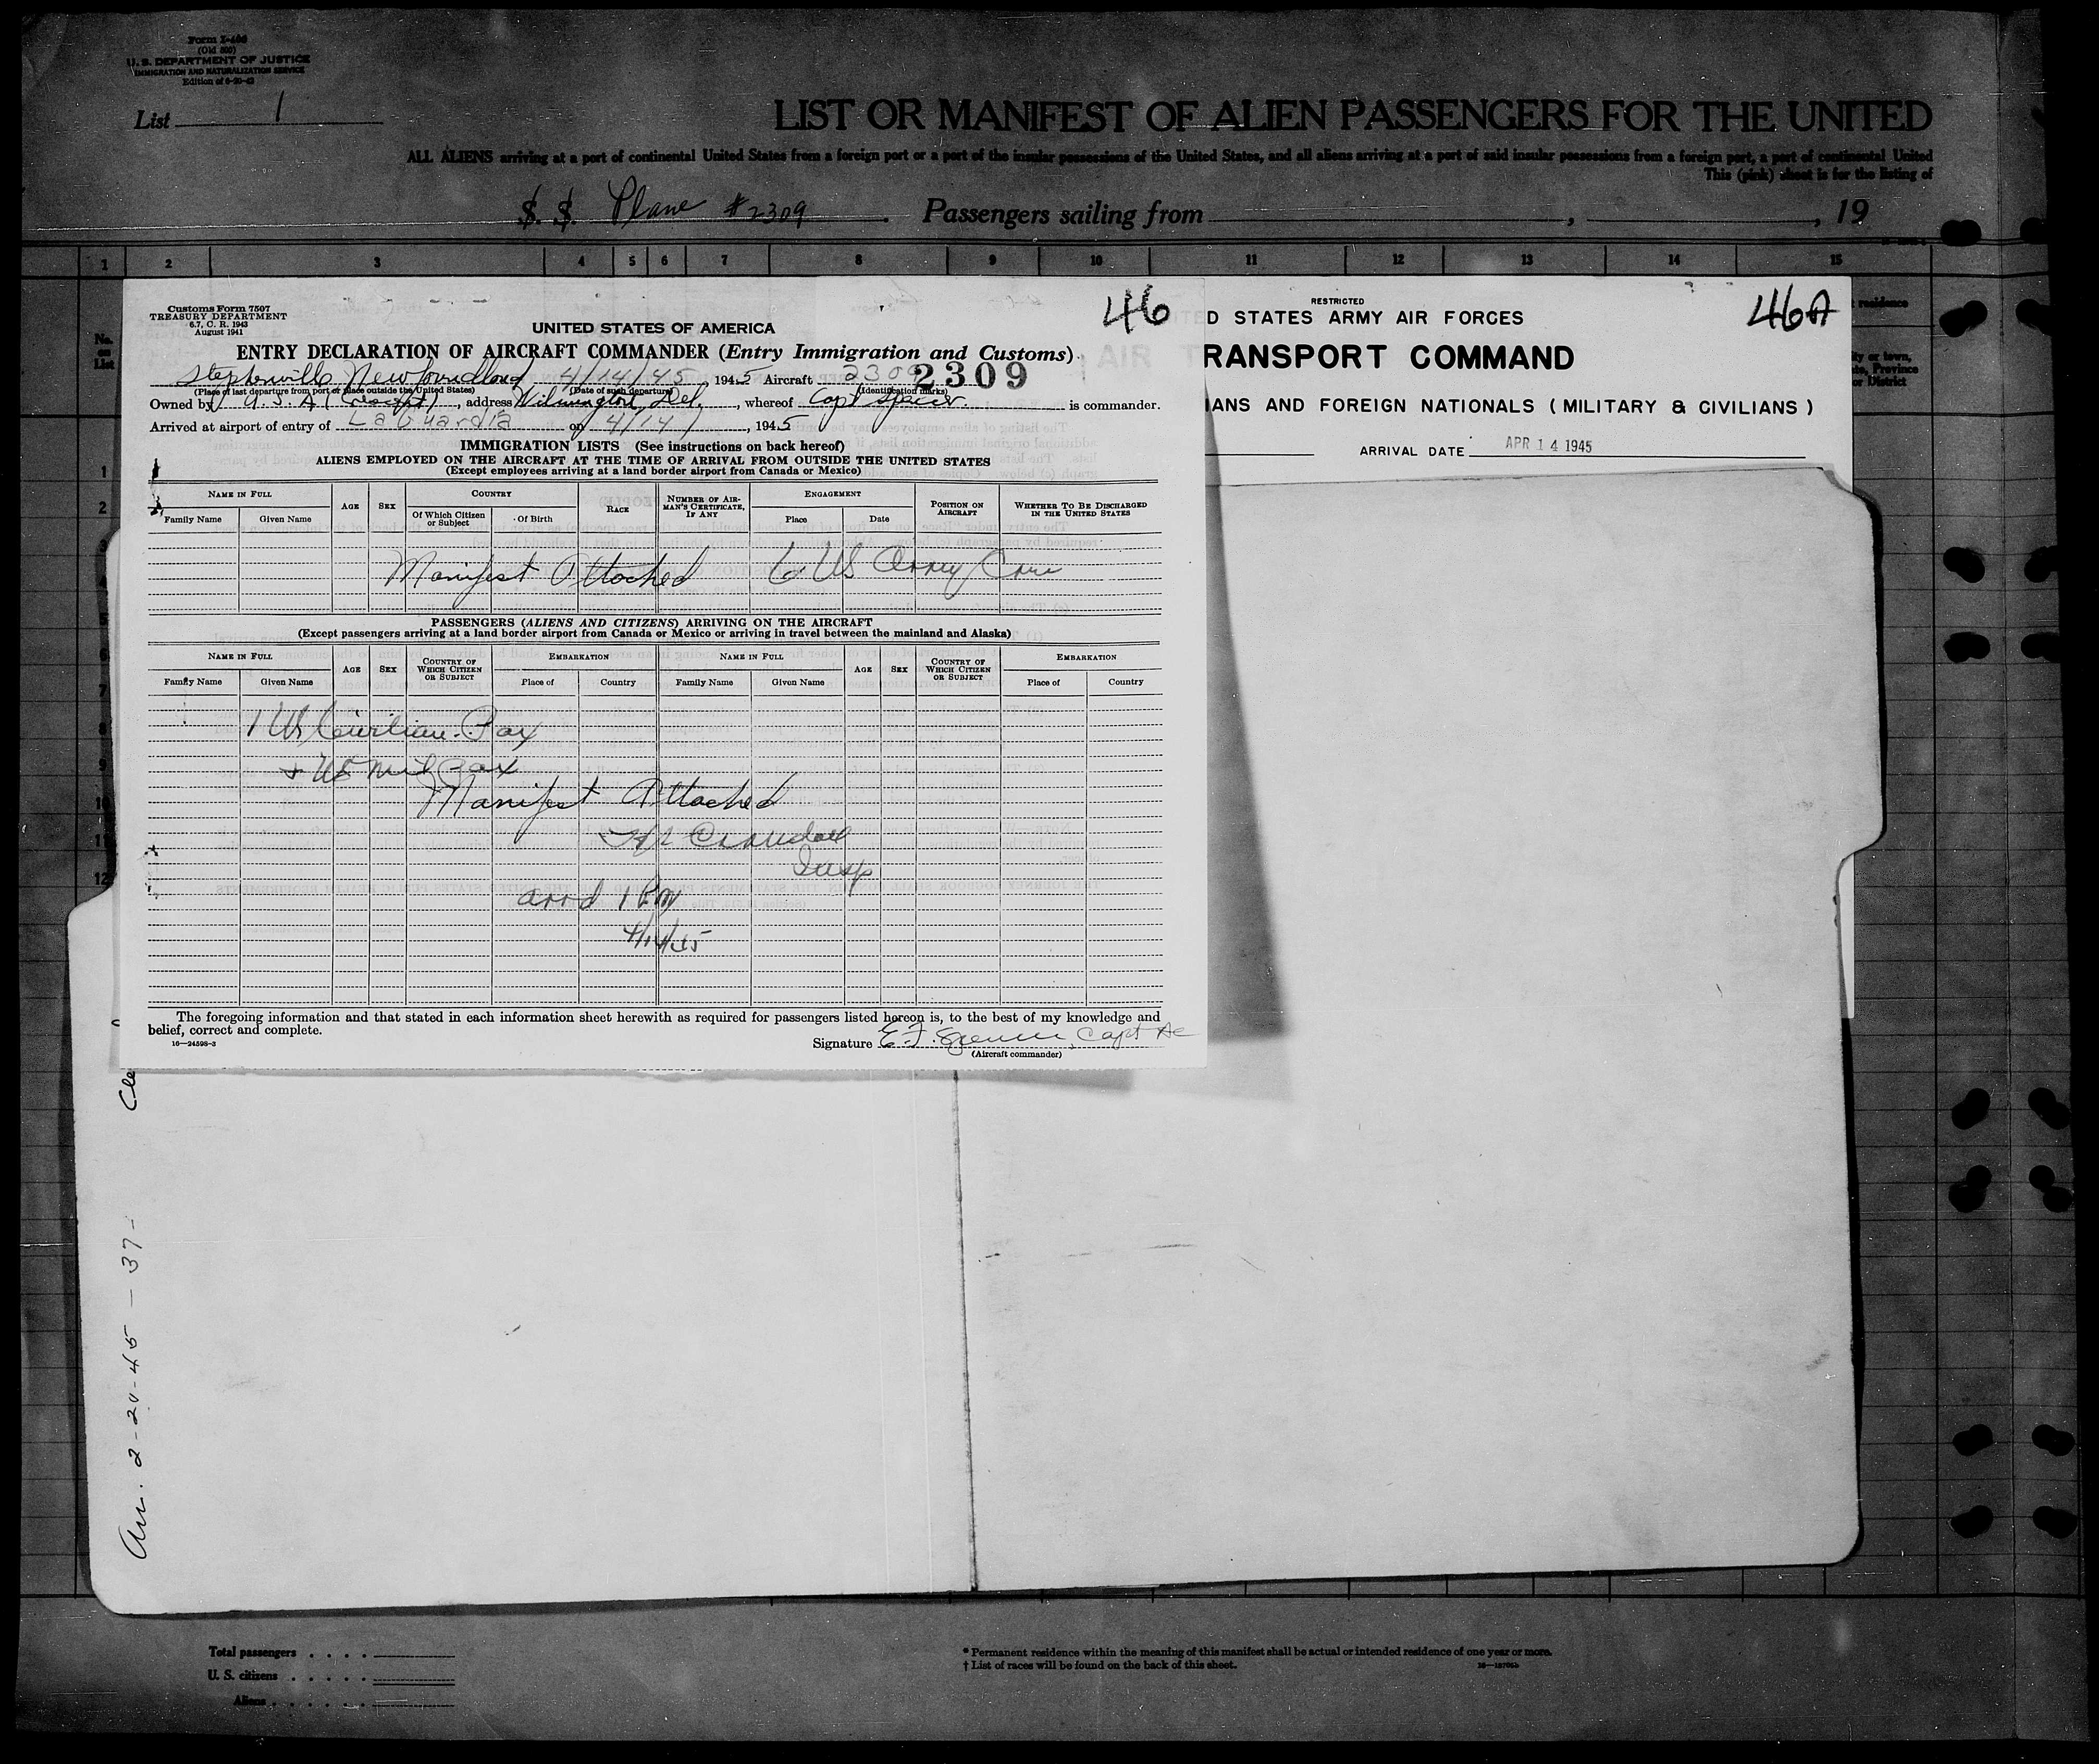 Form I-466
(Old 500)
U. S. DEPARTMENT OF JUSTICE
IMMIGRATION AND NATURALIZATION SERVICE
List 1
LIST OR MANIFEST OF ALIEN PASSENGERS FOR THE UNITED
ALL ALIENS arriving at a port of continental United States from a foreign port or a port of the insular possessions of the United States, and all aliens arriving at a port of said insular possessions from a foreign port, a port of continental United
This (pink) sheet is for the listing of
S. S. Plane #2309 . Passengers sailing from , , 19
1 2 3 4 5 6 7 8 9 10 11 12 13 14 15
No. on List
residence
ity or town,
Province
or District
1
2
3
4
5
6
7
8
9
10
11
12
Customs Form 7507
TREASURY DEPARTMENT
6.7, C. R. 1943
August 1941
46
UNITED STATES OF AMERICA
ENTRY DECLARATION OF AIRCRAFT COMMANDER (Entry Immigration and Customs)
Stephenville Newfoundland 4/14/45, 1945 Aircraft 2309 2309
(Place of last departure from port or place outside the United States) (Date of such departure) (Identification marks)
Owned by U.S.A. , address Wilmington, Del. , whereof Capt Spencer is commander.
Arrived at airport of entry of LaGuardia on 4/14 , 1945
IMMIGRATION LISTS (See instructions on back hereof)
ALIENS EMPLOYED ON THE AIRCRAFT AT THE TIME OF ARRIVAL FROM OUTSIDE THE UNITED STATES
(Except employees arriving at a land border airport from Canada or Mexico)
NAME IN FULL AGE SEX COUNTRY RACE NUMBER OF AIRMAN'S CERTIFICATE, IF ANY ENGAGEMENT POSITION ON AIRCRAFT WHETHER TO BE DISCHARGED IN THE UNITED STATES
Family Name Given Name Of Which Citizen or Subject Of Birth Place Date
Manifest Attached 6 US Army Crew
PASSENGERS (ALIENS AND CITIZENS) ARRIVING ON THE AIRCRAFT
(Except passengers arriving at a land border airport from Canada or Mexico or arriving in travel between the mainland and Alaska)
NAME IN FULL AGE SEX COUNTRY OF WHICH CITIZEN OR SUBJECT EMBARKATION NAME IN FULL AGE SEX COUNTRY OF WHICH CITIZEN OR SUBJECT EMBARKATION
Family Name Given Name Place of Country Family Name Given Name Place of Country
1 US Civilian Pax
+ US Mil Pax
Manifest Attached
Crandall
Insp
arrd 1 PM
4/14/45
The foregoing information and that stated in each information sheet herewith as required for passengers listed hereon is, to the best of my knowledge and
belief, correct and complete.
16—24598-3
Signature E. F. Spencer, Capt AC
(Aircraft commander)
RESTRICTED
46A
D STATES ARMY AIR FORCES
RANSPORT COMMAND
IANS AND FOREIGN NATIONALS ( MILITARY & CIVILIANS )
ARRIVAL DATE APR 14 1945
Cle
Arr. 2-20-45 - 37-
Total passengers
U. S. citizens
Aliens
* Permanent residence within the meaning of this manifest shall be actual or intended residence of one year or more.
† List of races will be found on the back of this sheet.